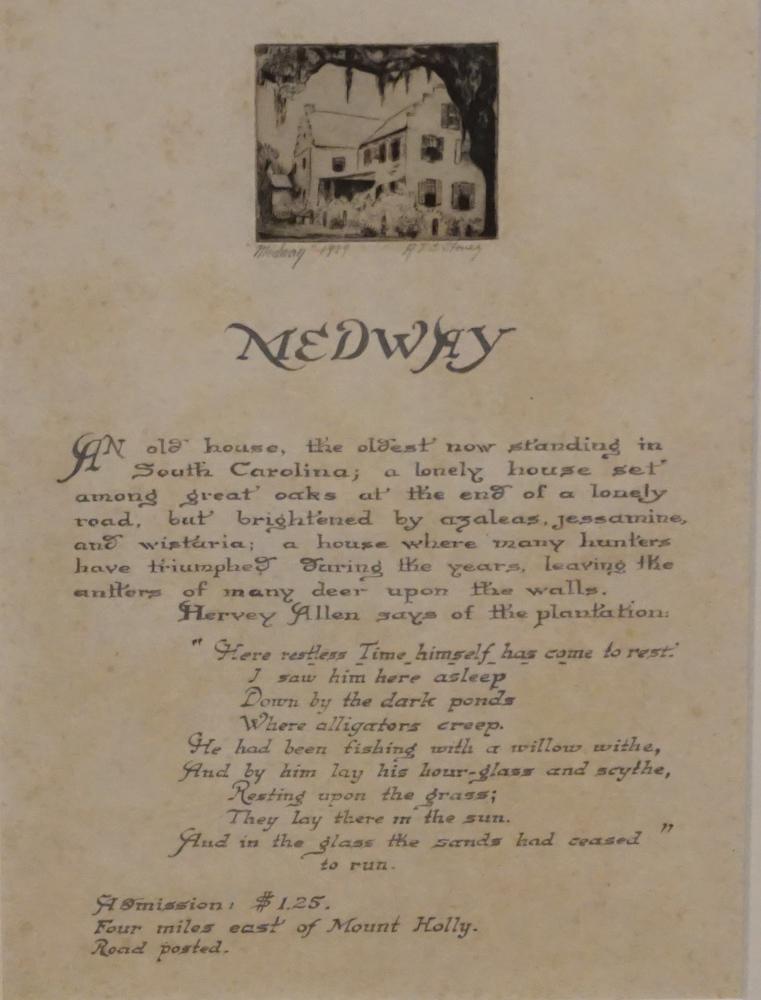 "Medway" 1929 A T S Stoney
MEDWAY
AN old house, the oldest now standing in
South Carolina; a lonely house set
among great oaks at the end of a lonely
road, but brightened by azaleas, jessamine,
and wistaria; a house where many hunters
have triumphed during the years, leaving the
antlers of many deer upon the walls.
Hervey Allen says of the plantation:
"Here restless Time himself has come to rest.
I saw him here asleep
Down by the dark ponds
Where alligators creep.
He had been fishing with a willow withe,
And by him lay his hour-glass and scythe,
Resting upon the grass;
They lay there in the sun.
And in the glass the sands had ceased
to run."
Admission: $1.25.
Four miles east of Mount Holly.
Road posted.